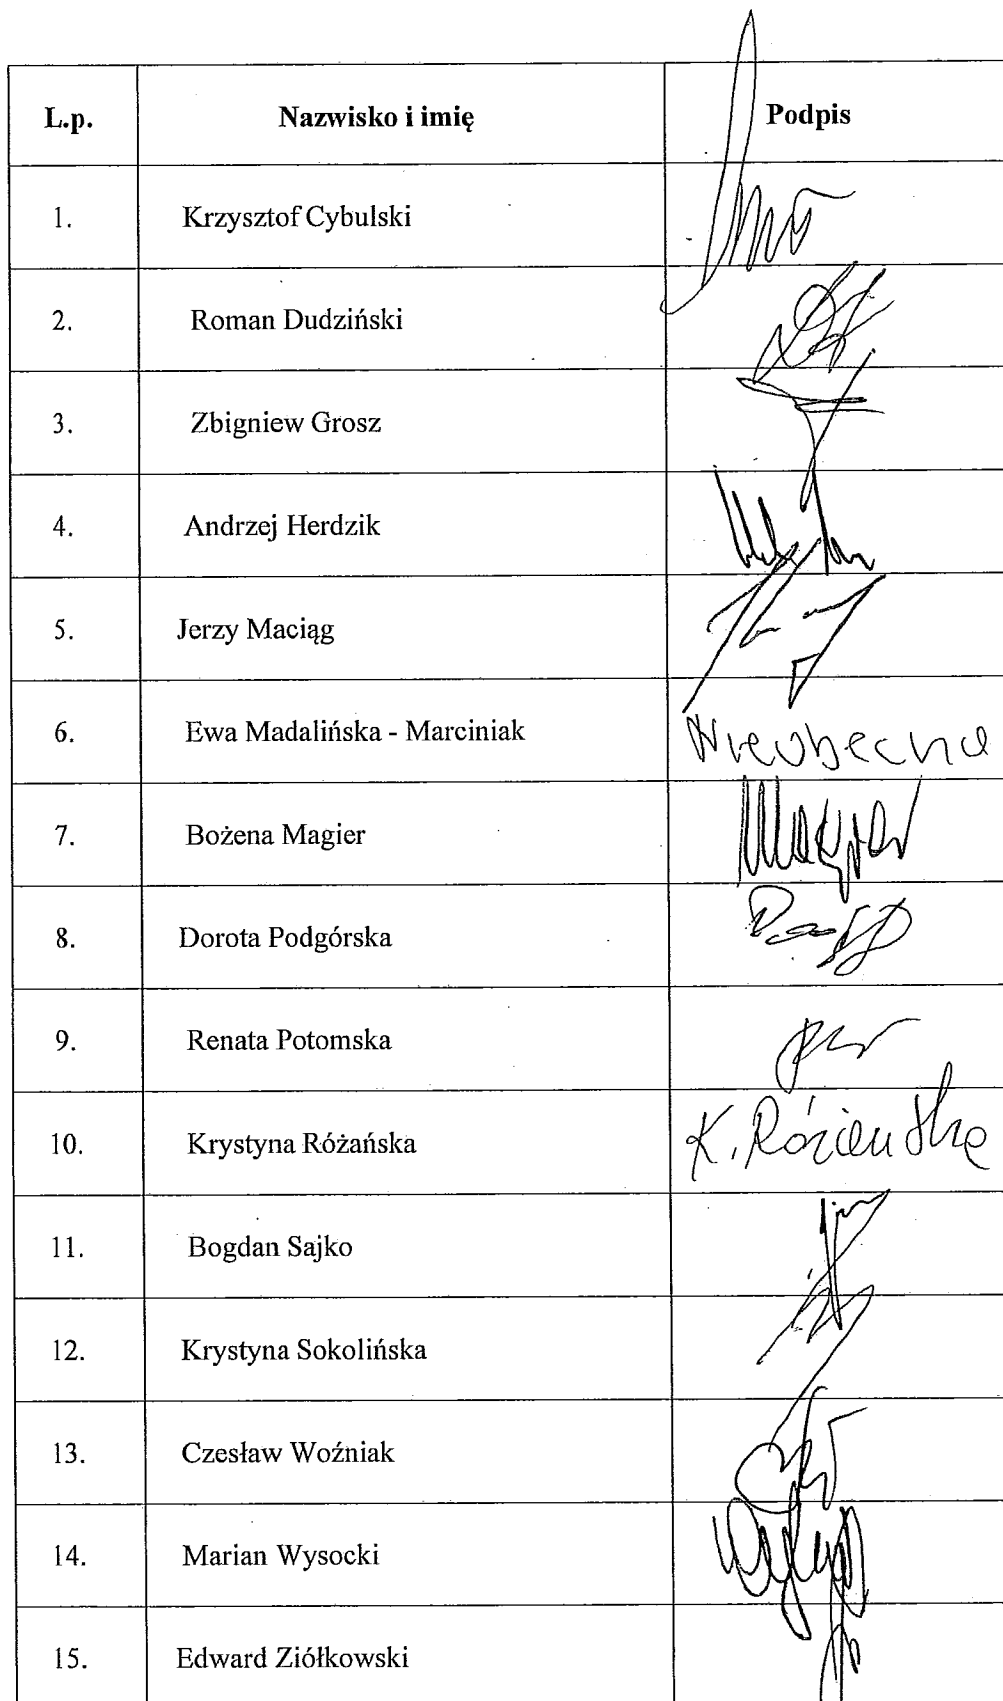 L.p. Nazwisko i imię Podpis
1. Krzysztof Cybulski
2. Roman Dudziński
3. Zbigniew Grosz
4. Andrzej Herdzik
5. Jerzy Maciąg
6. Ewa Madalińska - Marciniak Nieobecna
7. Bożena Magier Magier
8. Dorota Podgórska
9. Renata Potomska
10. Krystyna Różańska K. Różańska
11. Bogdan Sajko
12. Krystyna Sokolińska
13. Czesław Woźniak
14. Marian Wysocki
15. Edward Ziółkowski